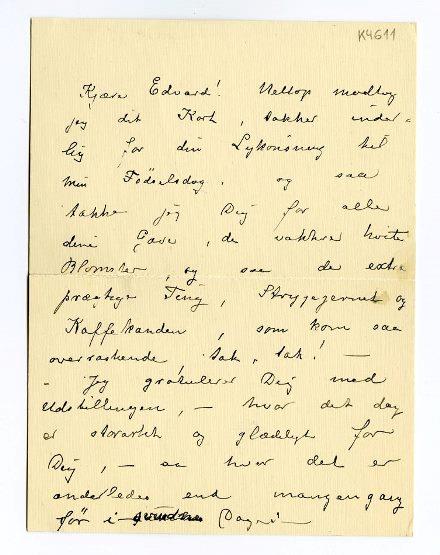 K4611
Kjære Edvard! Nettop modtog
jeg dit Kort, takker inder-
lig for din Lykønsning til
min Fødselsdag, og saa
takke jeg Dig for alle
dine Gave, de vakkre hvite
Blomster, og saa de extra
prægtige Ting, Strygejernet og
Kaffekanden, som kom saa
overraskende, tak, tak! —
– Jeg gratulerer Dig med
Udstillingen, – hvor det dog
er storartet og glædeligt for
Dig, – aa hvor det er
anderledes end mangengang
før i Dage! –